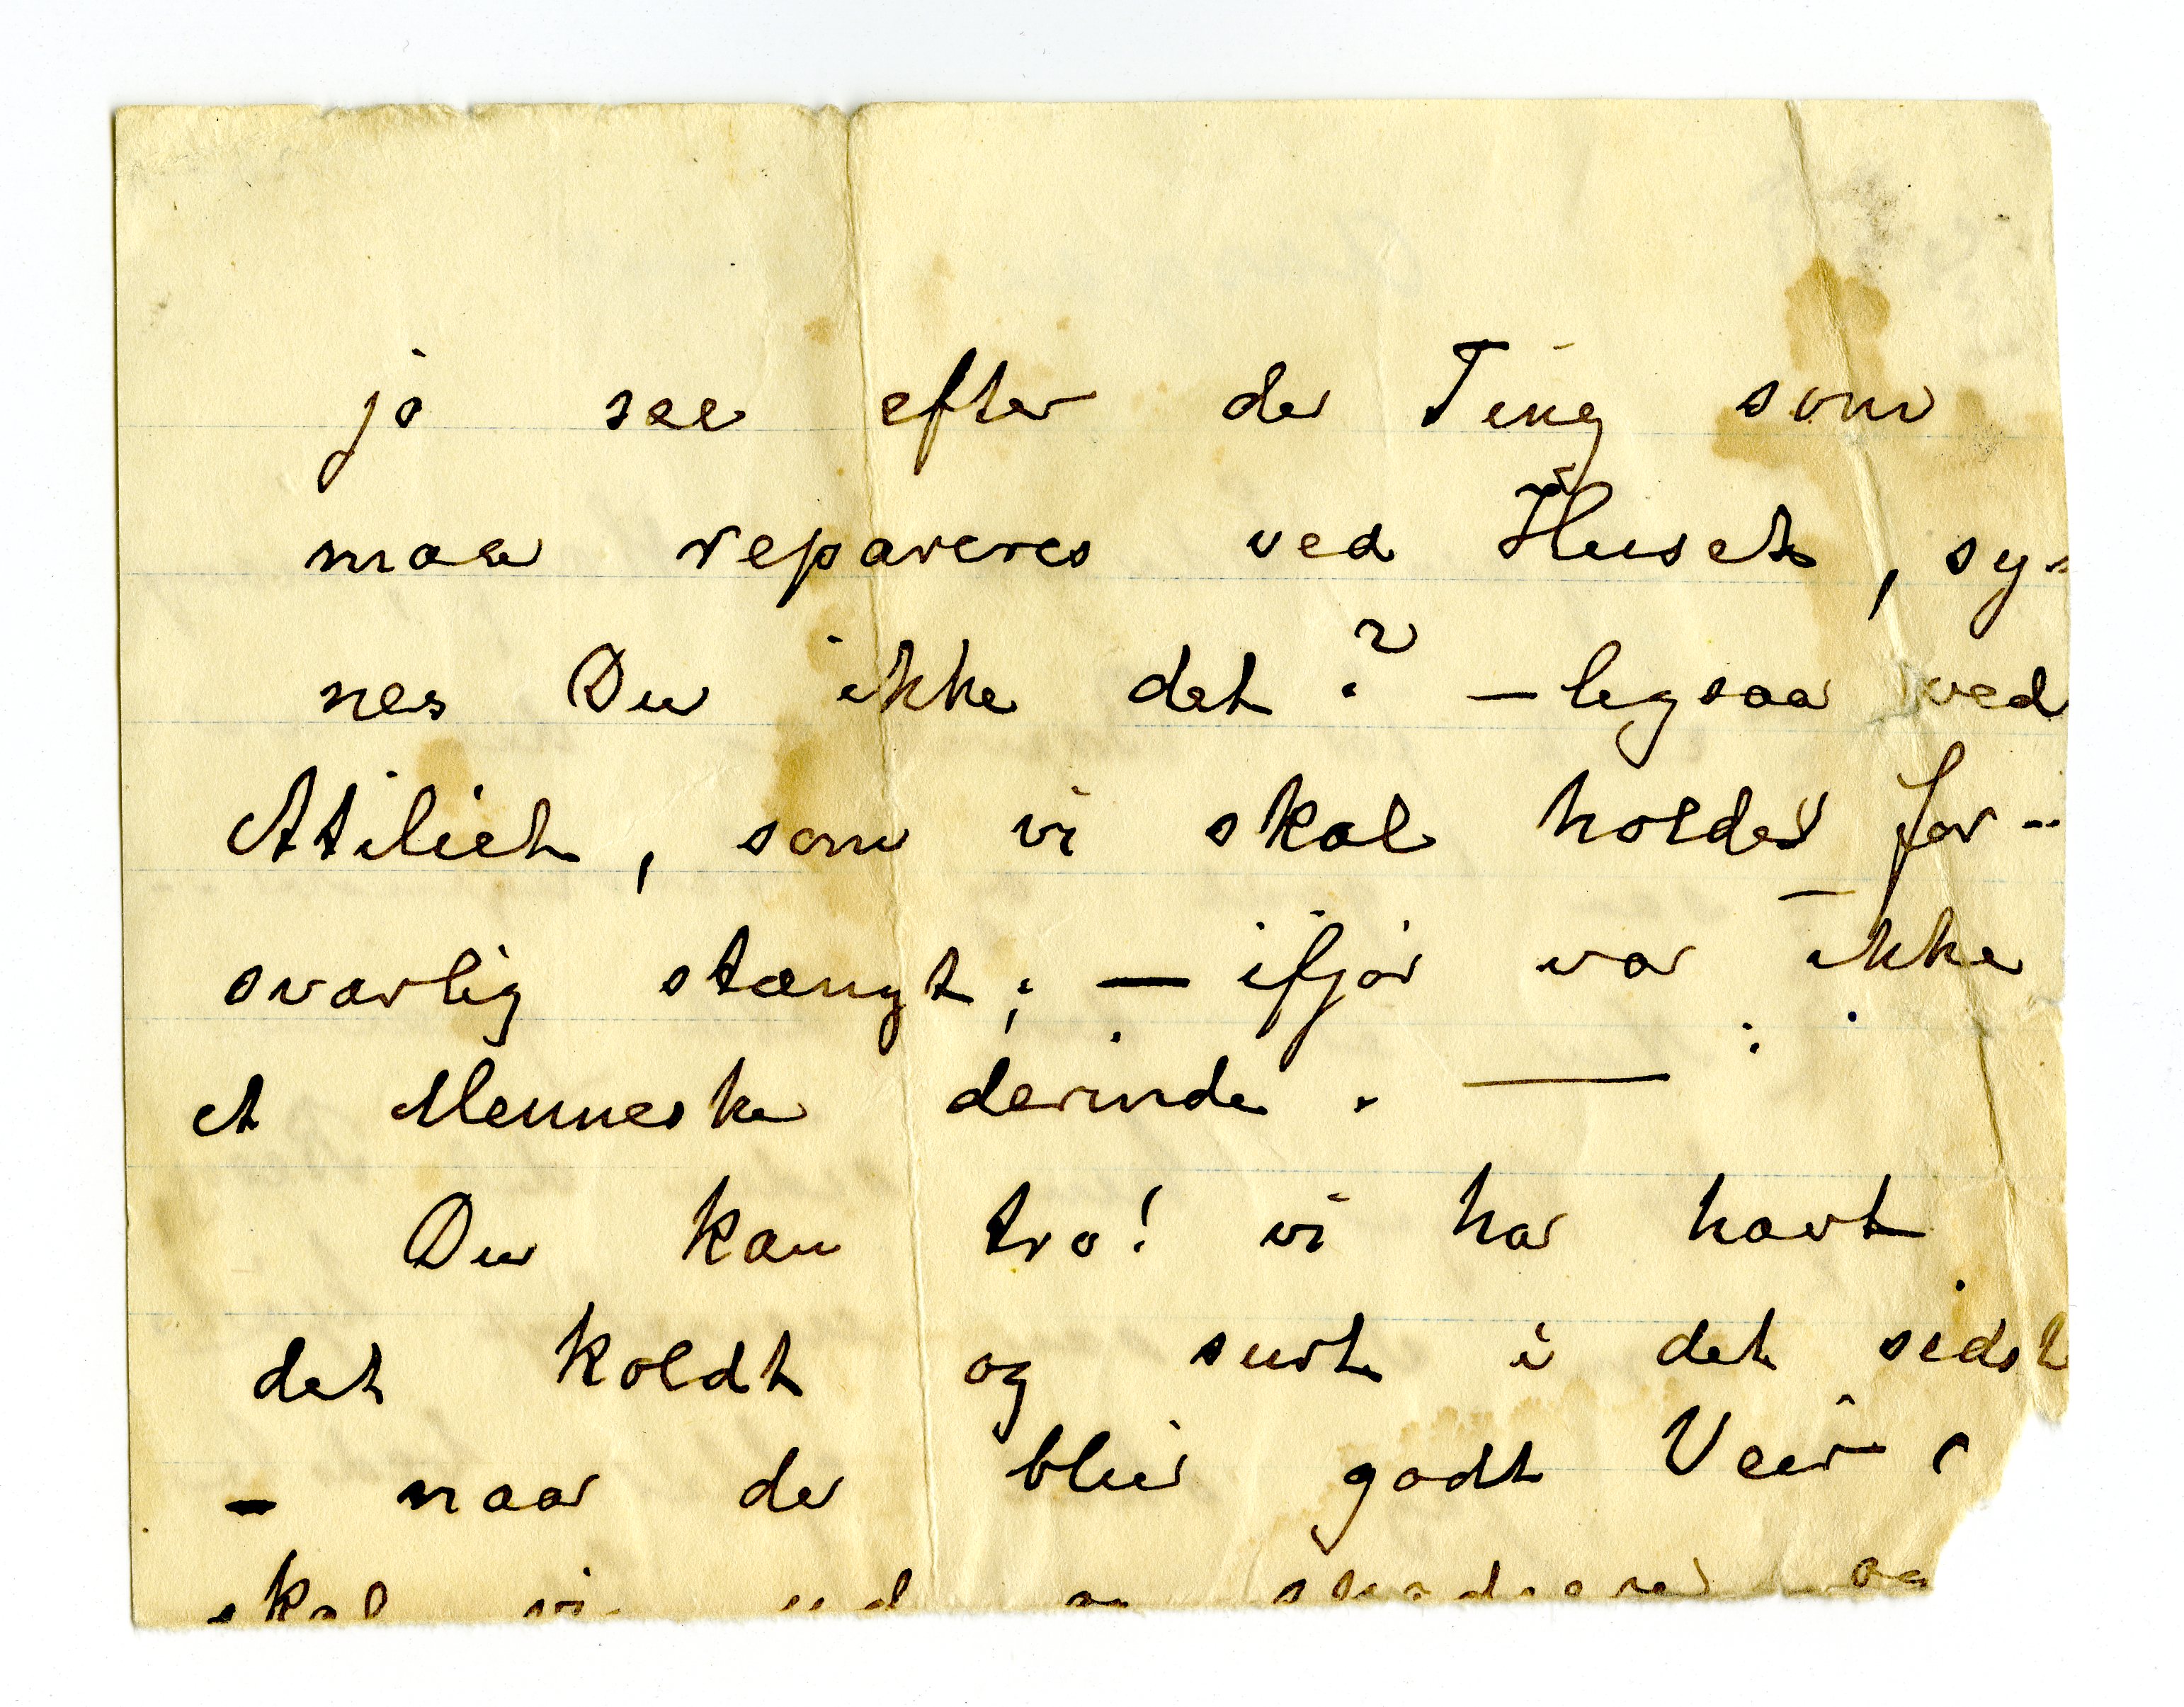 jo see efter de Ting som
maa repareres ved Huset, sy-
nes Du ikke det? – ligsaa ved
Atiliet, som vi skal holde for-
svarlig stængt; – ifjor var ikke
et Menneske derinde. —
Du kan tro! vi har havt
det koldt og surt i det sidst
– naar de blir godt Veir,
skal vi ud og studere og